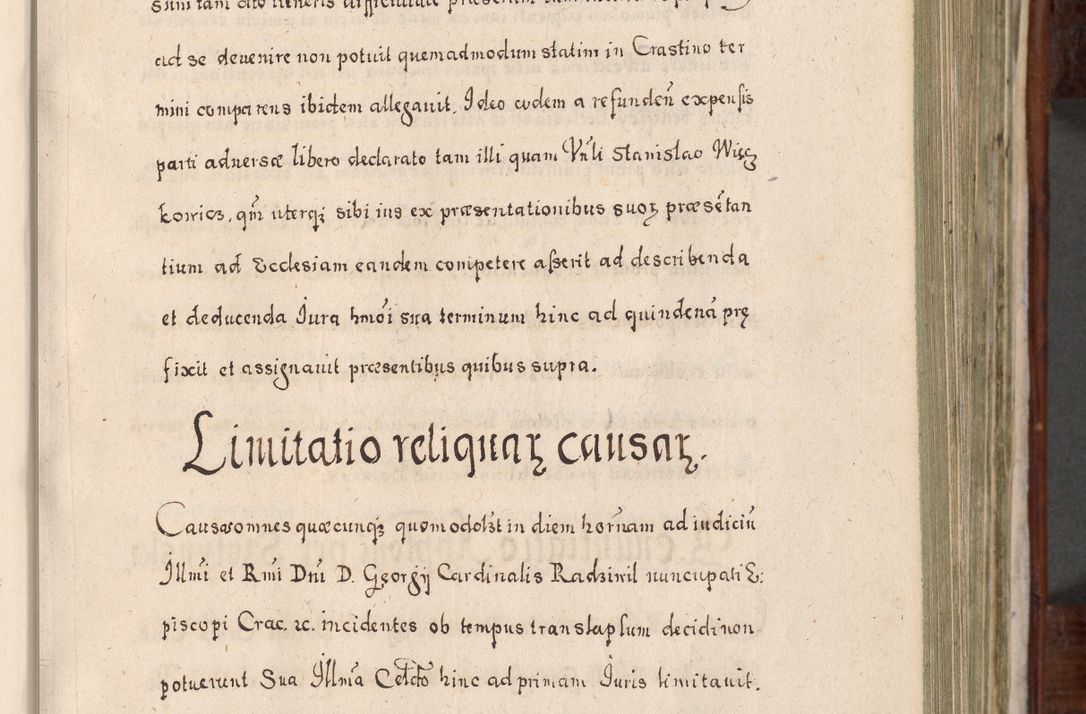 ad se deuenire non potuit quemadmodum statim in Crastino ter
mini comparens ibidem allegauit. Ideo eodem a refundeñ expensis
parti aduersæ libero declarato tam illi quam Vñli Stanislao Więcz
kowicz, qm̃ uterqꝫ sibi ius ex præsentationibus suoꝝ præsẽtan
tium ad Ecclesiam eandem competere asserit ad describenda
et deducenda Iura hmõi sua terminum hinc ad quindenã prę
fixit et assignauit præsentibus quibus supra.
Limitatio reliquaꝝ causaꝝ.
Causas omnes quæcunqꝫ quomodolibet in diem horñam ad iudiciũ
Illmi et Rmi Dni D. Georgij Cardinalis Radziwil nuncupati E:
piscopi Crac. ꝛc. incidentes ob tempus translapsum decidi non
potuerunt Sua Illma Celdo hinc ad primam Iuris limitauit.